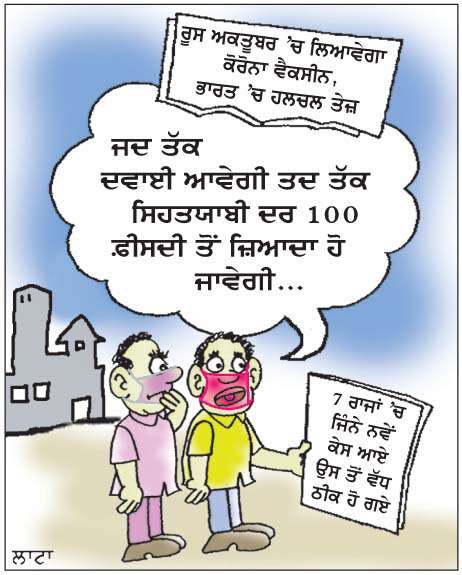 ਰੂਸ ਅਕਤੂਬਰ 'ਚ ਲਿਆਵੇਗਾ
ਕੋਰੋਨਾ ਵੈਕਸੀਨ,
ਭਾਰਤ 'ਚ ਹਲਚਲ ਤੇਜ਼
ਜਦ ਤੱਕ
ਦਵਾਈ ਆਵੇਗੀ ਤਦ ਤੱਕ
ਸਿਹਤਯਾਬੀ ਦਰ 100
ਫ਼ੀਸਦੀ ਤੋਂ ਜ਼ਿਆਦਾ ਹੋ
ਜਾਵੇਗੀ...
7 ਰਾਜਾਂ 'ਚ
ਜਿੰਨੇ ਨਵੇਂ
ਕੇਸ ਆਏ
ਉਸ ਤੋਂ ਵੱਧ
ਠੀਕ ਹੋ ਗਏ
ਲਾਟਾ